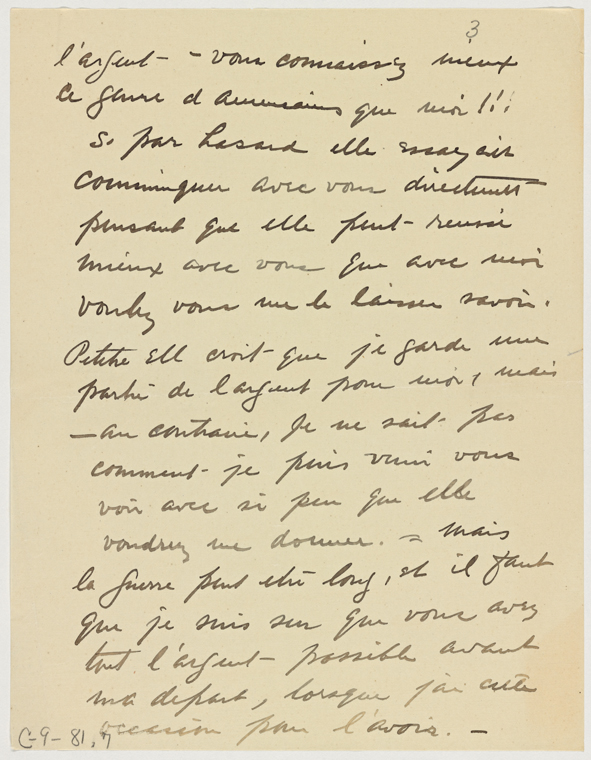 3
l'argent - - vous connaissez mieux
ce genre d'americains que moi !!!
Si par hasard elle essayait
comminquer avec vous directement
pensant que elle peut reussi
mieux avec vous que avec moi
voulez vous me le laisser savoir.
Petitre Ell croit que je garde une
partie de l'argent pour moi, mais
- au contraire, Je ne sait pas
comment je puis venir vous
voir avec si peu que elle
voudrez me donner. = Mais
la guerre peut etre long, et il faut
que je suis sur que vous avez
tout l'argent possible avant
ma depart, lorsque j'ai cette
occasion pour l'avoir. -
C-9-81,7